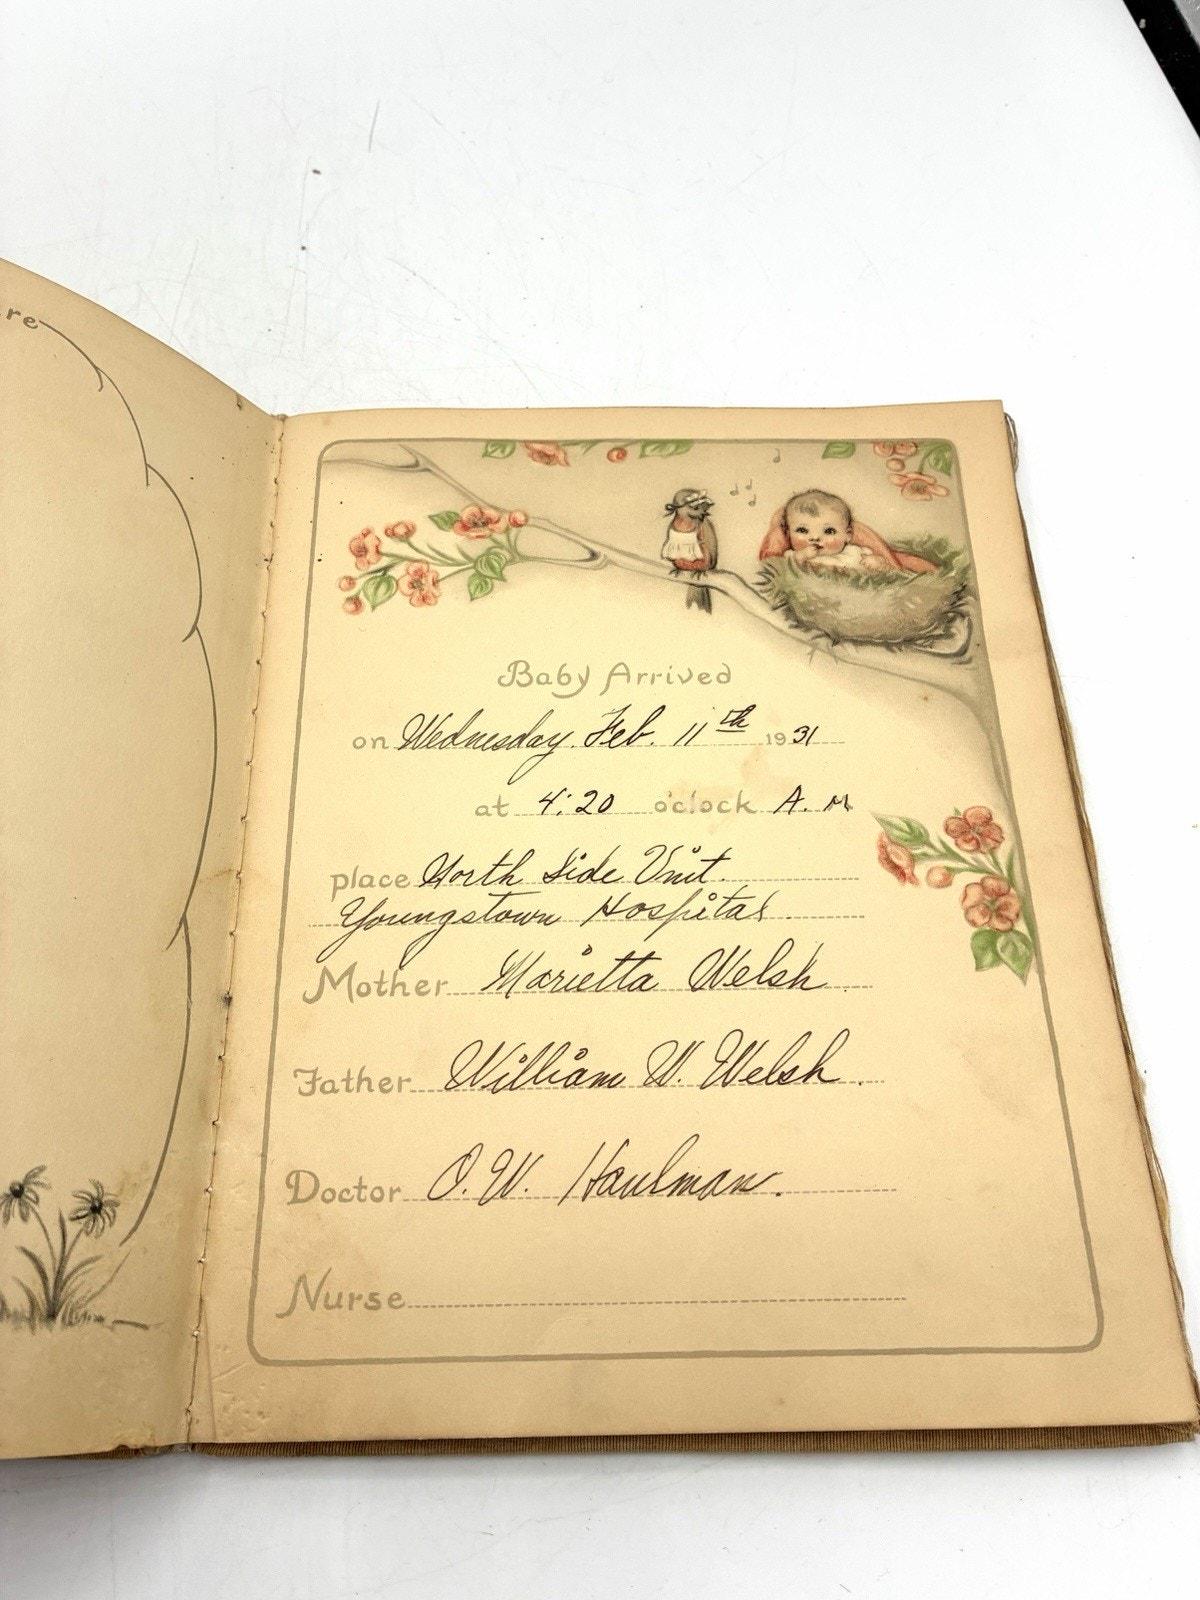 re
Baby Arrived
on Wednesday. Feb. 11th 1931
at 4:20 o'clock A. M
place North Side Unit.
Youngstown Hospital.
Mother Marietta Welsh.
Father William W. Welsh.
Doctor O. W. Haulman.
Nurse